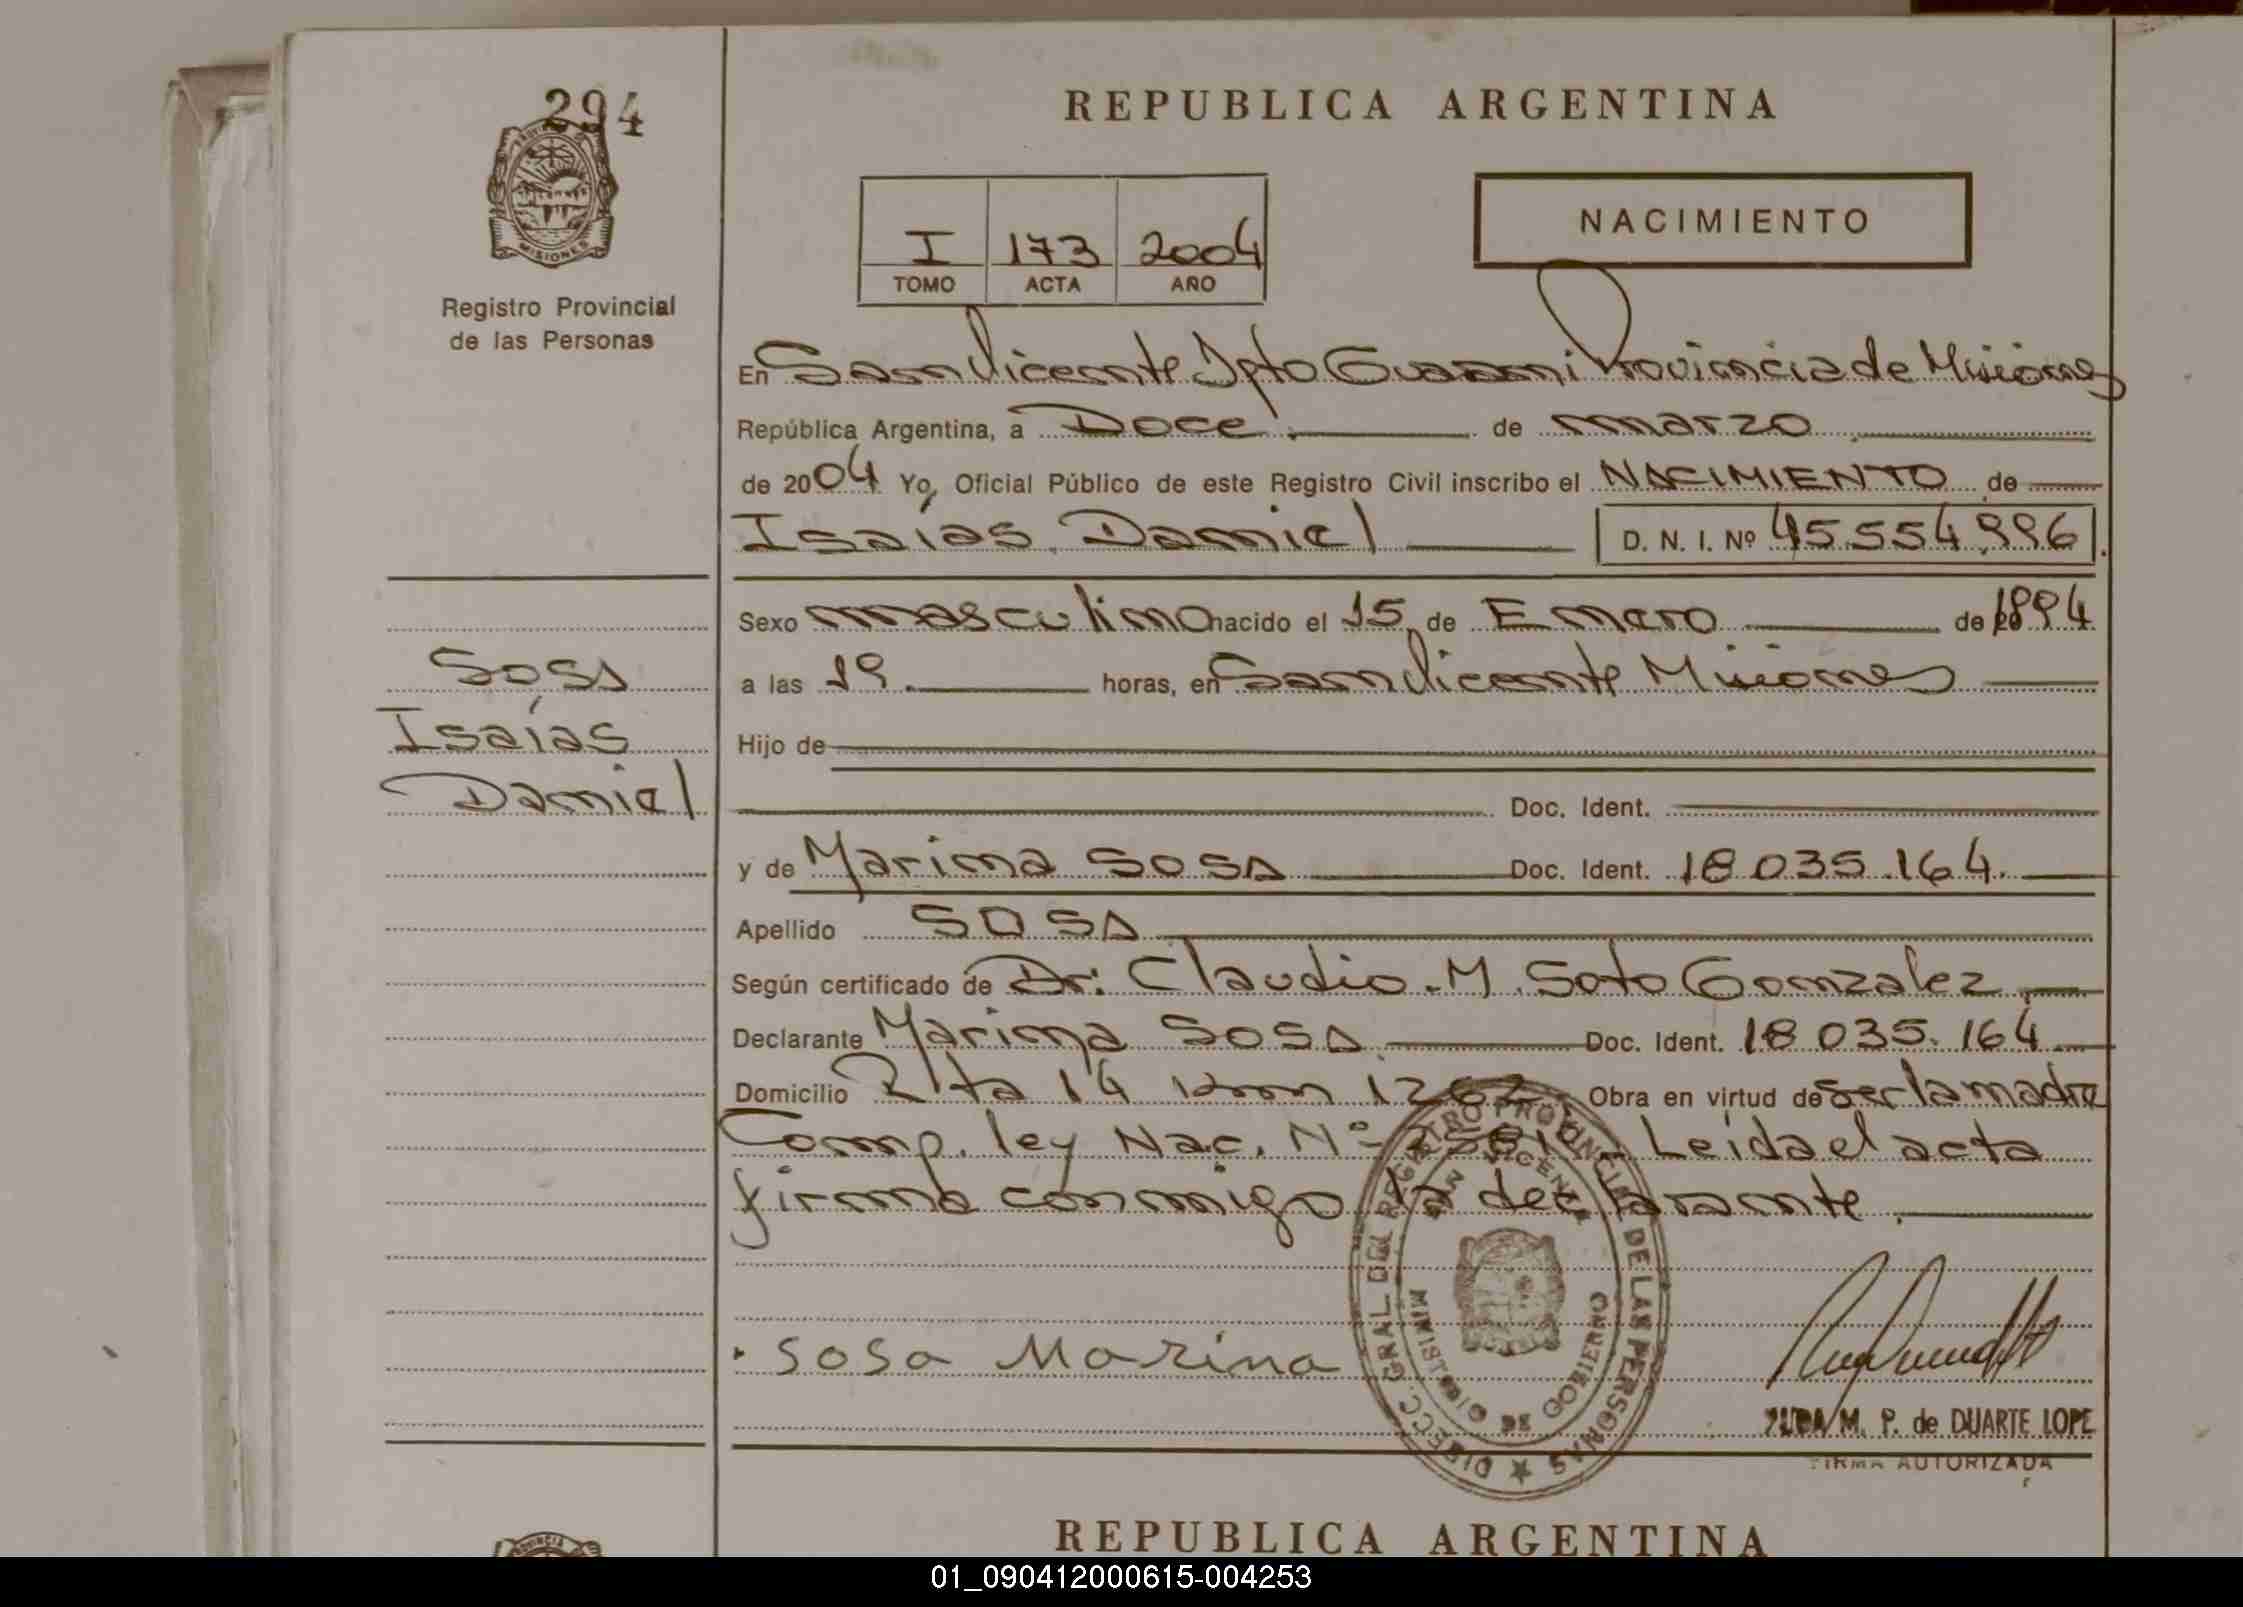 294
PROVINCIA DE
MISIONES
Registro Provincial
de las Personas
Sosa
Isaías
Daniel
REPUBLICA ARGENTINA
NACIMIENTO
I 173 2004
TOMO ACTA AÑO
En San Vicente Dpto Guaraní Provincia de Misiones
República Argentina, a Doce de marzo
de 2004 Yo, Oficial Público de este Registro Civil inscribo el NACIMIENTO de
Isaías Daniel D. N. I. Nº 45.554.996
Sexo masculino nacido el 15 de Enero de 1994
a las 19 horas, en San Vicente Misiones
Hijo de
Doc. Ident.
y de Marina Sosa Doc. Ident. 18.035.164.
Apellido SOSA
Según certificado de Dr: Claudio M. Soto Gonzalez
Declarante Marina Sosa Doc. Ident. 18.035.164
Domicilio Rta 14 Km 1262 Obra en virtud de ser la madre
Comp. ley Nac. Nº Leída el acta
firma conmigo la declarante.
DIRECC. GRAL. DEL REGISTRO PROVINCIAL DE LAS PERSONAS
SAN VICENTE
MINISTERIO DE GOBIERNO
Sosa Marina
M. P. de DUARTE LOPE
FIRMA AUTORIZADA
PROVINCIA
REPUBLICA ARGENTINA
01_090412000615-004253